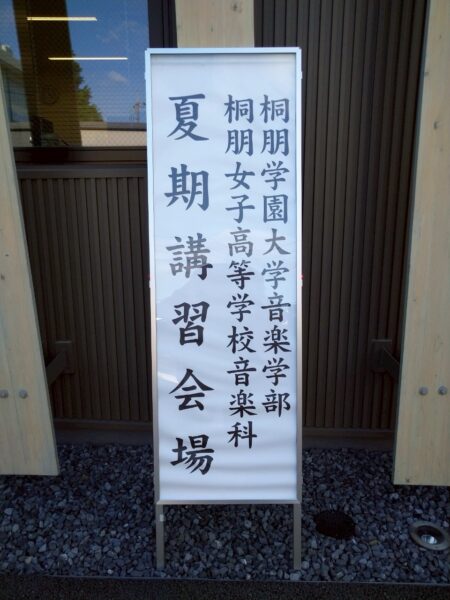 桐朋学園大学音楽学部
桐朋女子高等学校音楽科
夏期講習会場